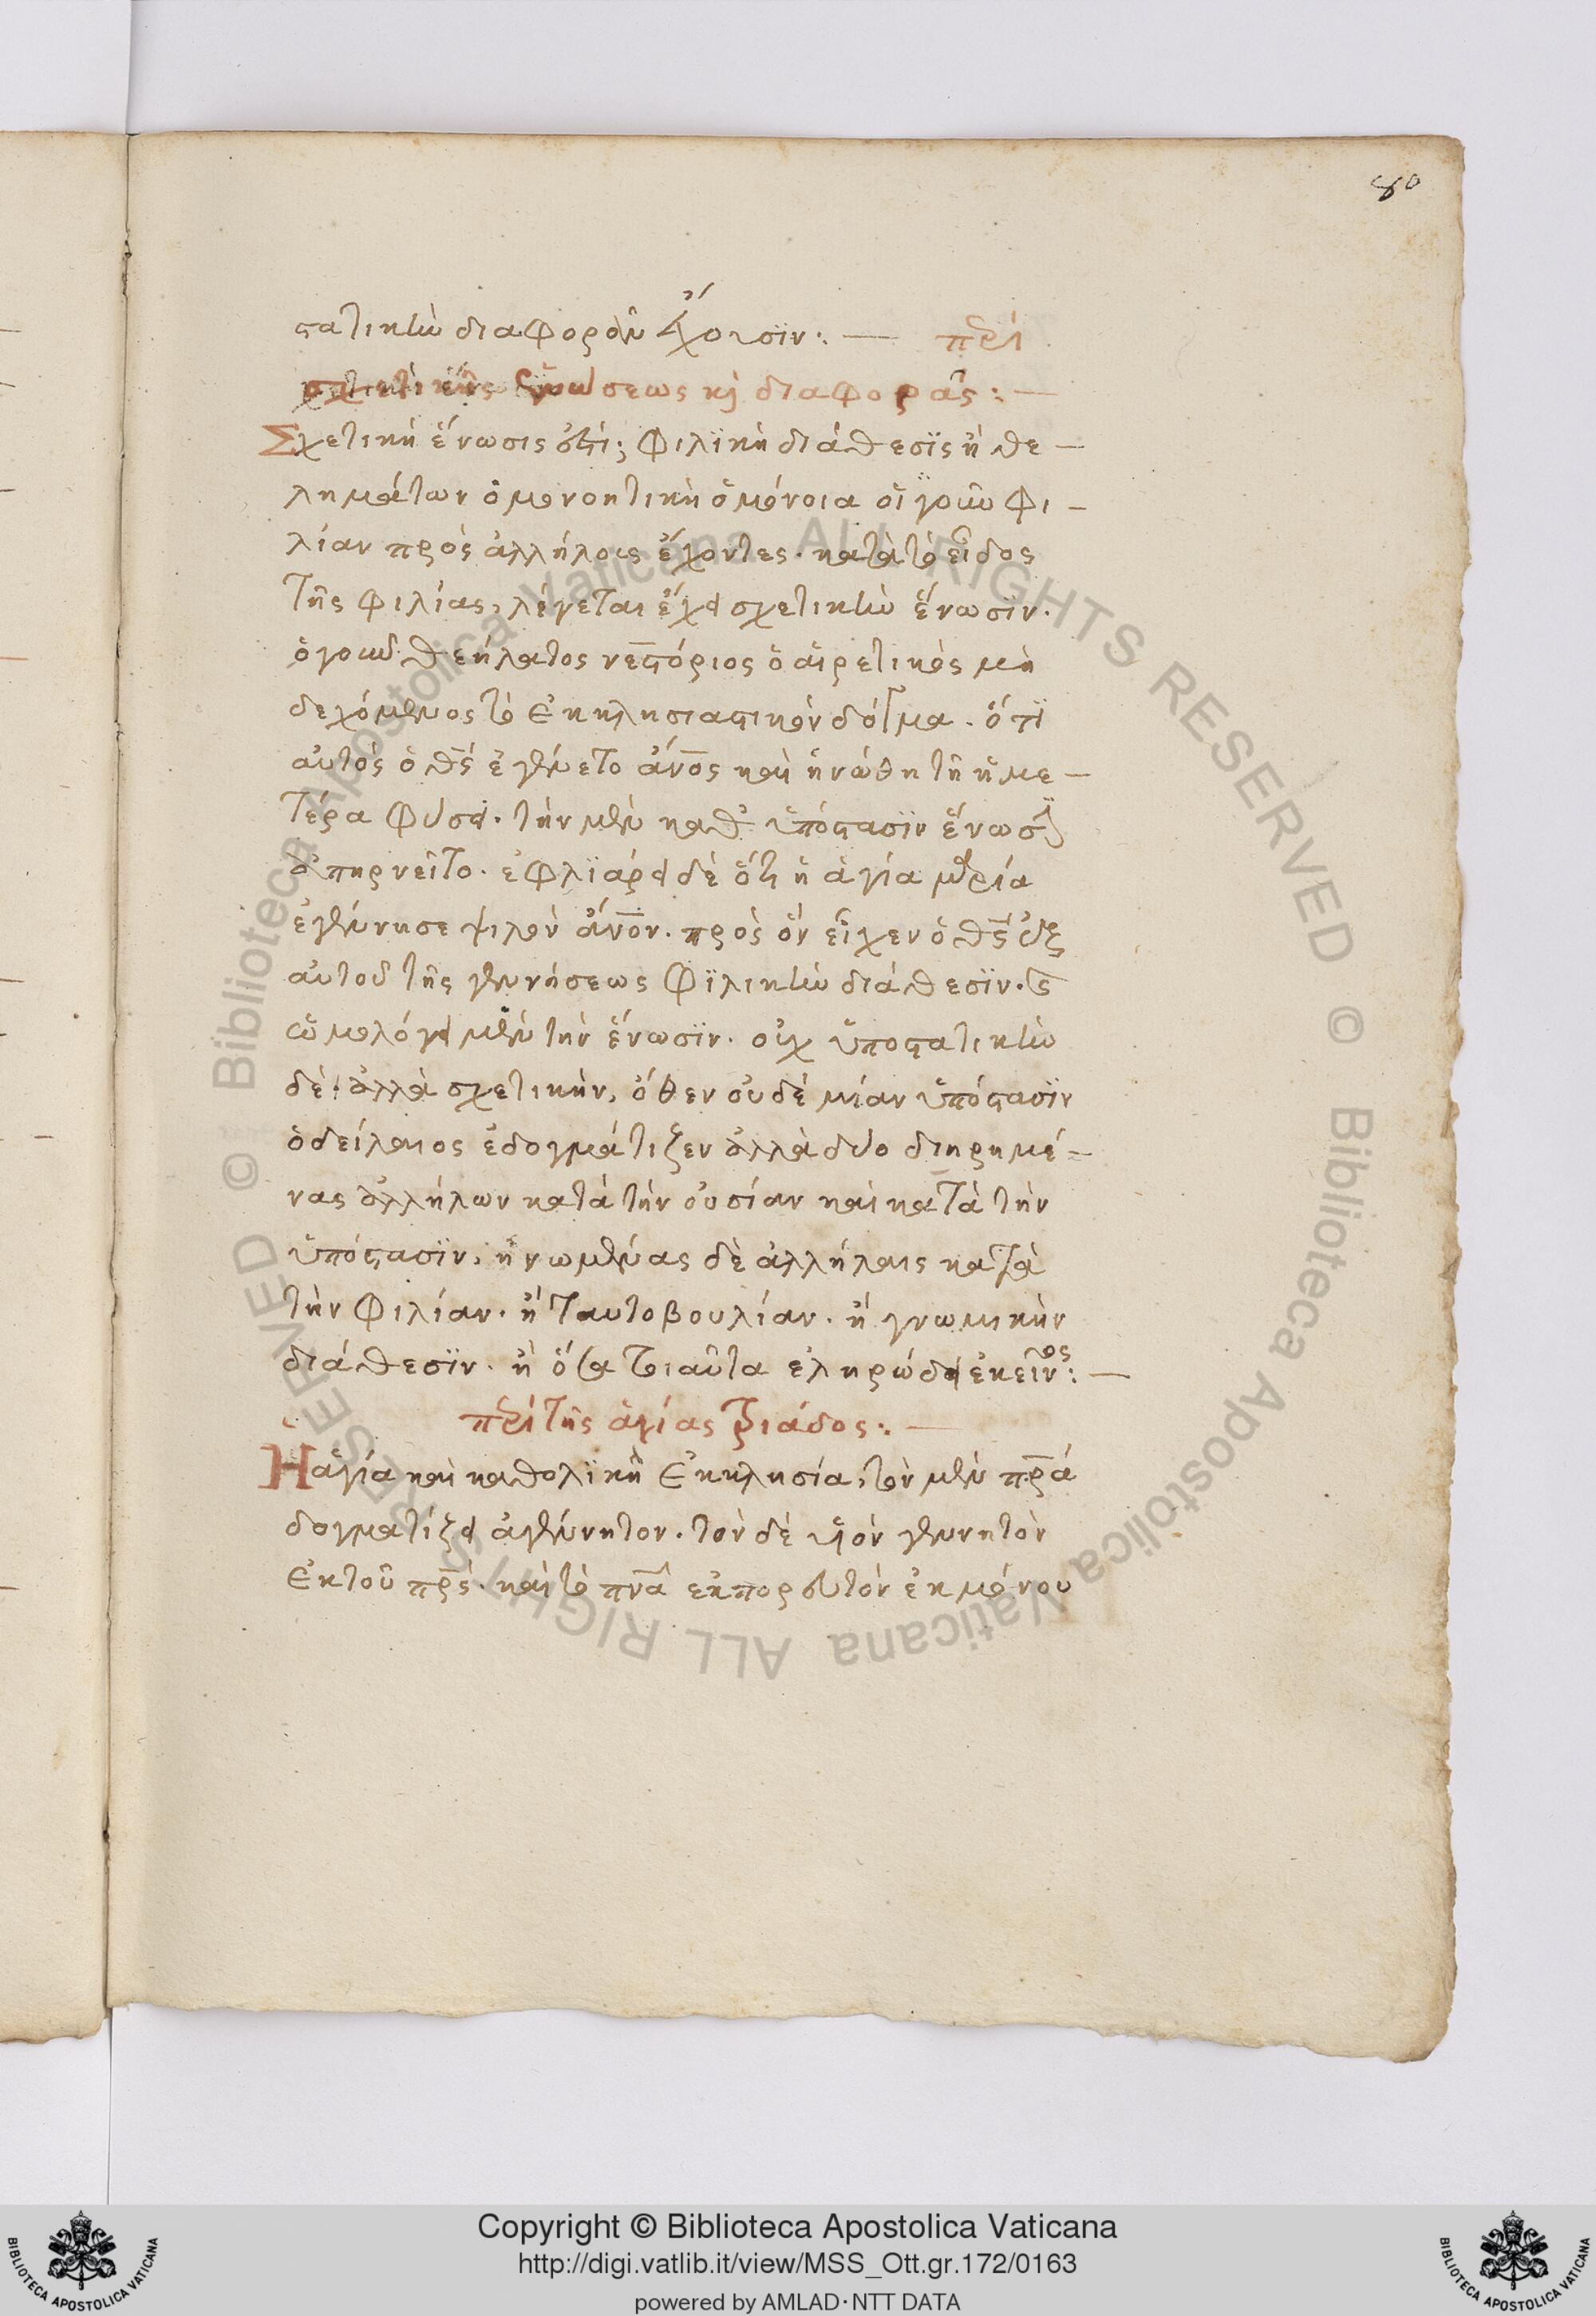 80
στατικὴν διαφορὰν ἔχουσϊν:— περὶ
σχετικῆς ἑνώσεως κὶ διαφορᾶς:—
Σχετικὴ ἕνωσις ἐστί; φιλϊκὴ διάθεσϊς ἢ θε–
λημάτων ὁμονοητικὴ ὁμόνοια οἵ γοῦν φι–
λίαν πρὸς ἀλλήλους ἔχοντες. κατὰ τὸ εἶδος
τῆς φιλίας, λέγεται ἔχει σχετικὴν ἕνωσϊν.
ὁ γοῦν θεήλατος νεστόριος ὁ αἱρετικὸς μὴ
δεχόμενος τὸ ἐκκλησιαστικὸν δόγμα. ὅτϊ
αὐτὸς ὁ θς ἐγένετο ἄνος καὶ ἡνώθη τῆ ἡμε–
τέρα φύσει. τὴν μὲν καθ' ὑπόστασϊν ἕνωσϊν
ἀπηρνεῖτο. ἐφλϊάρει δὲ ὅτι ἡ ἁγία μαρία
ἐγέννησε ψιλὸν ἄνον. πρὸς ὃν εἶχεν ὁ θς ἐξ
αὐτοῦ τῆς γεννήσεως φϊλικὴν διάθεσϊν. καὶ
ὡμολόγει μὲν τὴν ἕνωσϊν. οὐχ ὑποστατικὴν
δὲ. ἀλλὰ σχετικὴν, ὅθεν οὐδὲ μίαν ὑπόστασϊν
ὁ δείλαιος ἐδογμάτιζεν ἀλλὰ δύο διηρημέ–
νας ἀλλήλων κατὰ τὴν οὐσίαν καὶ κατὰ τὴν
ὑπόστασϊν, ἡνωμένας δὲ ἀλλήλαις κατὰ
τὴν φιλίαν. ἢ ταυτοβουλίαν. ἢ γνωμικὴν
διάθεσϊν. ἢ ὅσα τοιαῦτα εληρώδει ἐκεῖνος:—
περὶ τῆς ἁγίας τριάδος:—
Ἡ ἁγία καὶ καθολϊκὴ ἐκκλησία, τὸν μὲν πρα
δογματίζει ἀγέννητον. τὸν δὲ υἱὸν γεννητὸν
ἐκ τοῦ πρς. καὶ τὸ πνα εκπορευτὸν ἐκ μόνου
Copyright © Biblioteca Apostolica Vaticana
http://digi.vatlib.it/view/MSS_Ott.gr.172/0163
powered by AMLAD·NTT DATA
BIBLIOTECA APOSTOLICA VATICANA
BIBLIOTECA APOSTOLICA VATICANA
© Biblioteca Apostolica Vaticana ALL RIGHTS RESERVED © Biblioteca Apostolica Vaticana ALL RIGHTS RESERVED